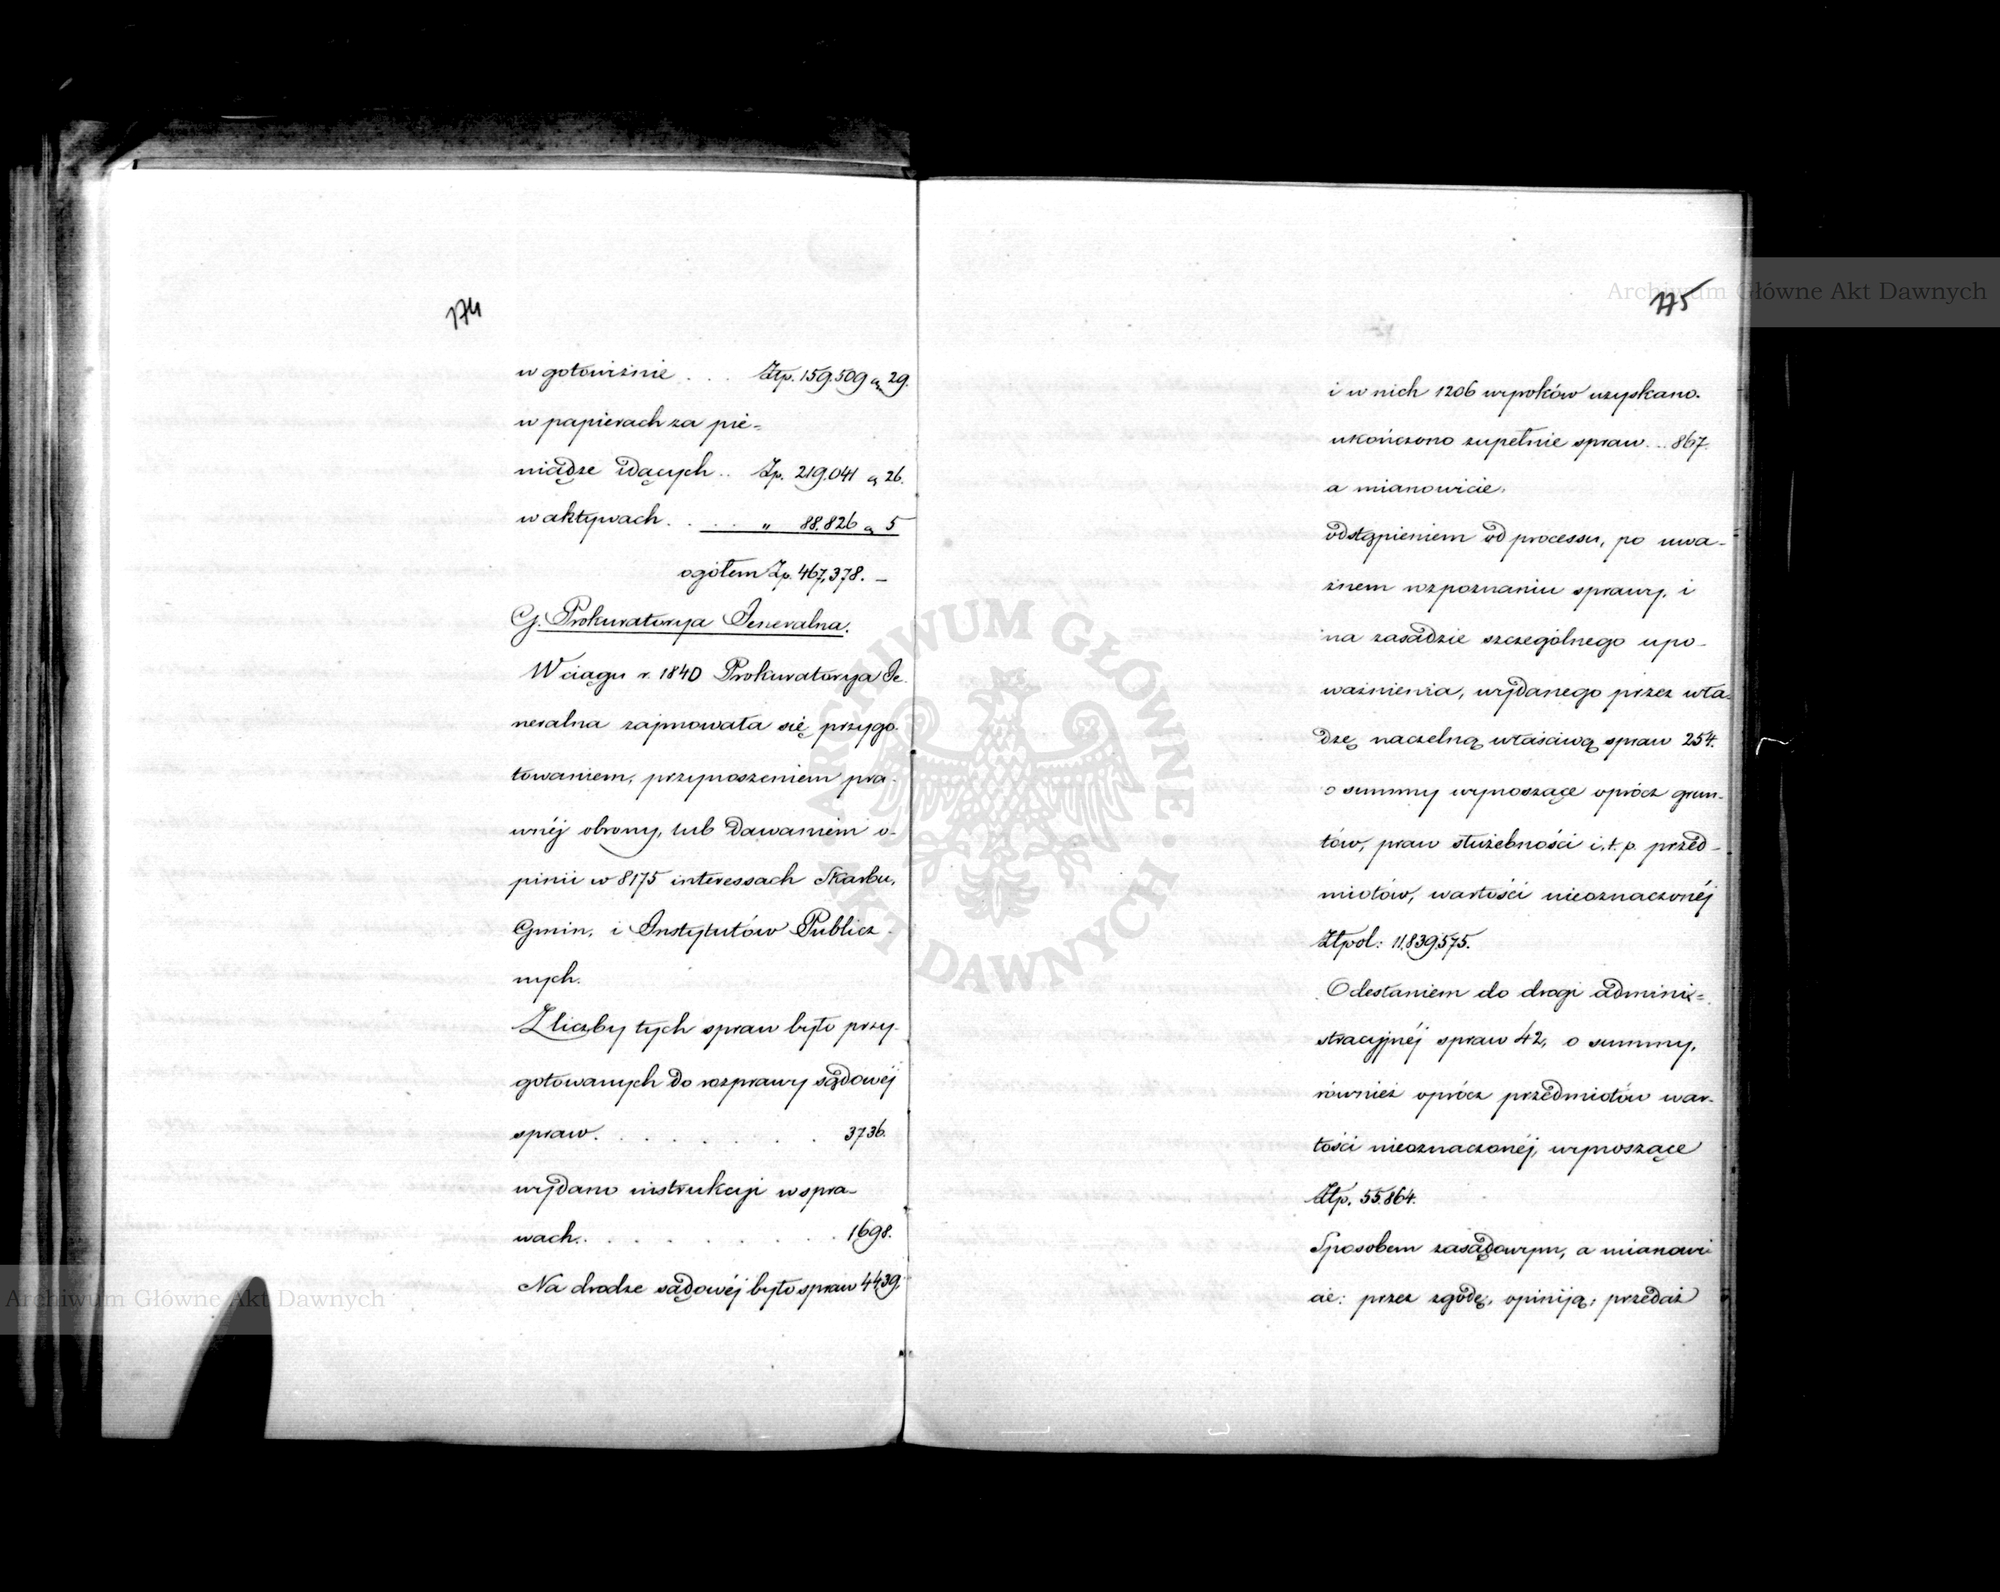 174
w gotowiźnie . . . Złp. 159.509 g 29.
w papierach za pie=
niądze idących . . Zp. 219.041 g 26.
w aktywach . . . . „ 88.826 g 5
ogółem Zp. 467,378. —
G. Prokuratorya Jeneralna.
W ciągu r. 1840 Prokuratorya Je.
neralna zajmowała się przygo-
towaniem, przynoszeniem pra-
wnéj obrony, lub dawaniem o-
pinii w 8175 interessach Skarbu,
Gmin, i Instytutów Publicz-
nych.
Z liczby tych spraw było przy-
gotowanych do rozprawy sądowéj
spraw . . . . . . . 3736.
wydano instrukcyi w spra-
wach . . . . . . . . 1698.
Na drodze sądowéj było spraw 4439,
175
i w nich 1206 wyroków uzyskano.
ukończono zupełnie spraw . . . 867.
a mianowicie,
odstąpieniem od processu, po uwa-
żnem rozpoznaniu sprawy, i
na zasadzie szczególnego upo-
ważnienia, wydanego przez wła-
dzę naczelną właściwą spraw 254.
o summy wynoszące oprócz grun-
tów, praw służebności i.t.p. przed-
miotów, wartości nieoznaczonéj
Złpol: 11.839.575.
Odesłaniem do drogi admini=
stracyjnéj spraw 42, o summy,
również oprócz przedmiotów war-
tości nieoznaczonéj, wynoszące
Złp. 55.864.
Sposobem zasądowym, a mianowi
cie: przez zgodę, opiniją, przedaż
Archiwum Główne Akt Dawnych
Archiwum Główne Akt Dawnych
ARCHIWUM GŁÓWNE · AKT DAWNYCH ·